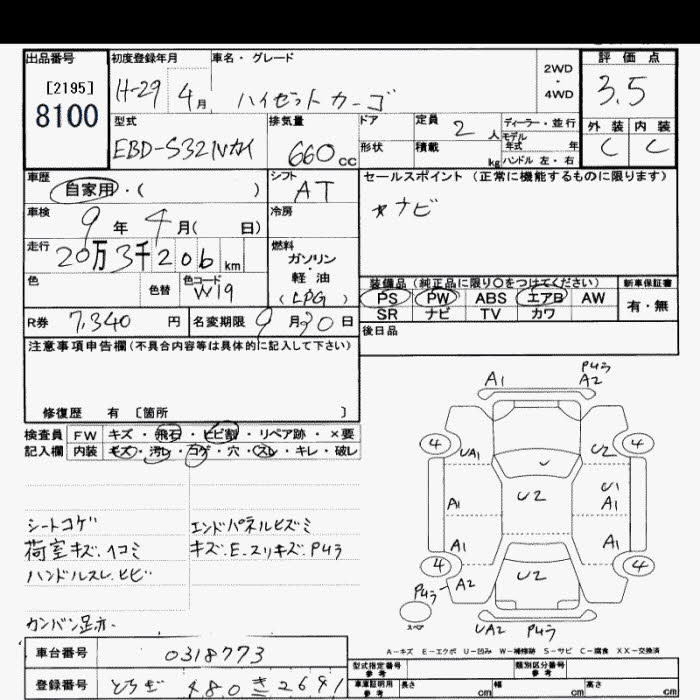 出品番号 初度登録年月 車名・グレード 評価点
[2195]
8100
H-29 4月 ハイゼットカーゴ 2WD・4WD 3.5
型式 排気量 ドア 定員 2人 ディーラー・並行
モデル年式 年
EBD-S321V 660cc 形状 積載 kg ハンドル 左・右
外装 内装
C C
車歴 シフト セールスポイント (正常に機能するものに限ります)
自家用・( ) AT
車検 9年4月( 日) 冷房 ナビ
走行 20万3千206km 燃料 ガソリン・軽油
(LPG)
色 色替 色コード W19
装備品 (純正品に限り○をつけてください) 新車保証書
PS PW ABS エアB AW 有・無
SR ナビ TV カワ
R券 7,340円 名変期限 9月30日
後日品
注意事項申告欄 (不具合内容等は具体的に記入して下さい)
修復歴 有 〔箇所 〕
検査員 FW キズ・飛石・ヒビ割・リペア跡・×要
記入欄 内装 キズ・汚レ・コゲ・穴・スレ・キレ・破レ
シートコゲ エンドパネルヒズミ
荷室キズ.ヘコミ キズ.E.スリキズ.Pムラ
ハンドルスレ.ヒビ
カンバン跡
A1 Pムラ
A2
4 4
UA1 U2
U2
A1 U1
A1
A1 A1
4 4
Pムラ A2 U2
スペア
UA2 Pムラ
A-キズ E-エクボ U-凹み W-補修跡 S-サビ C-腐食 XX-交換済
車台番号 0318773
型式指定番号 参考 類別区分番号 参考
登録番号 とちぎ 480 き 2691
車庫証明用 参考 長さ cm 幅 cm 高さ cm